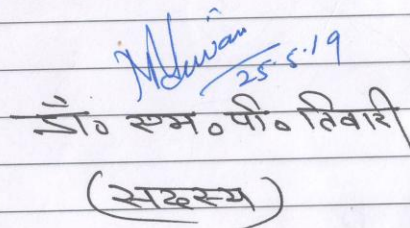 25.5.19
डॉ० एम०पी० तिवारी
(सदस्य)